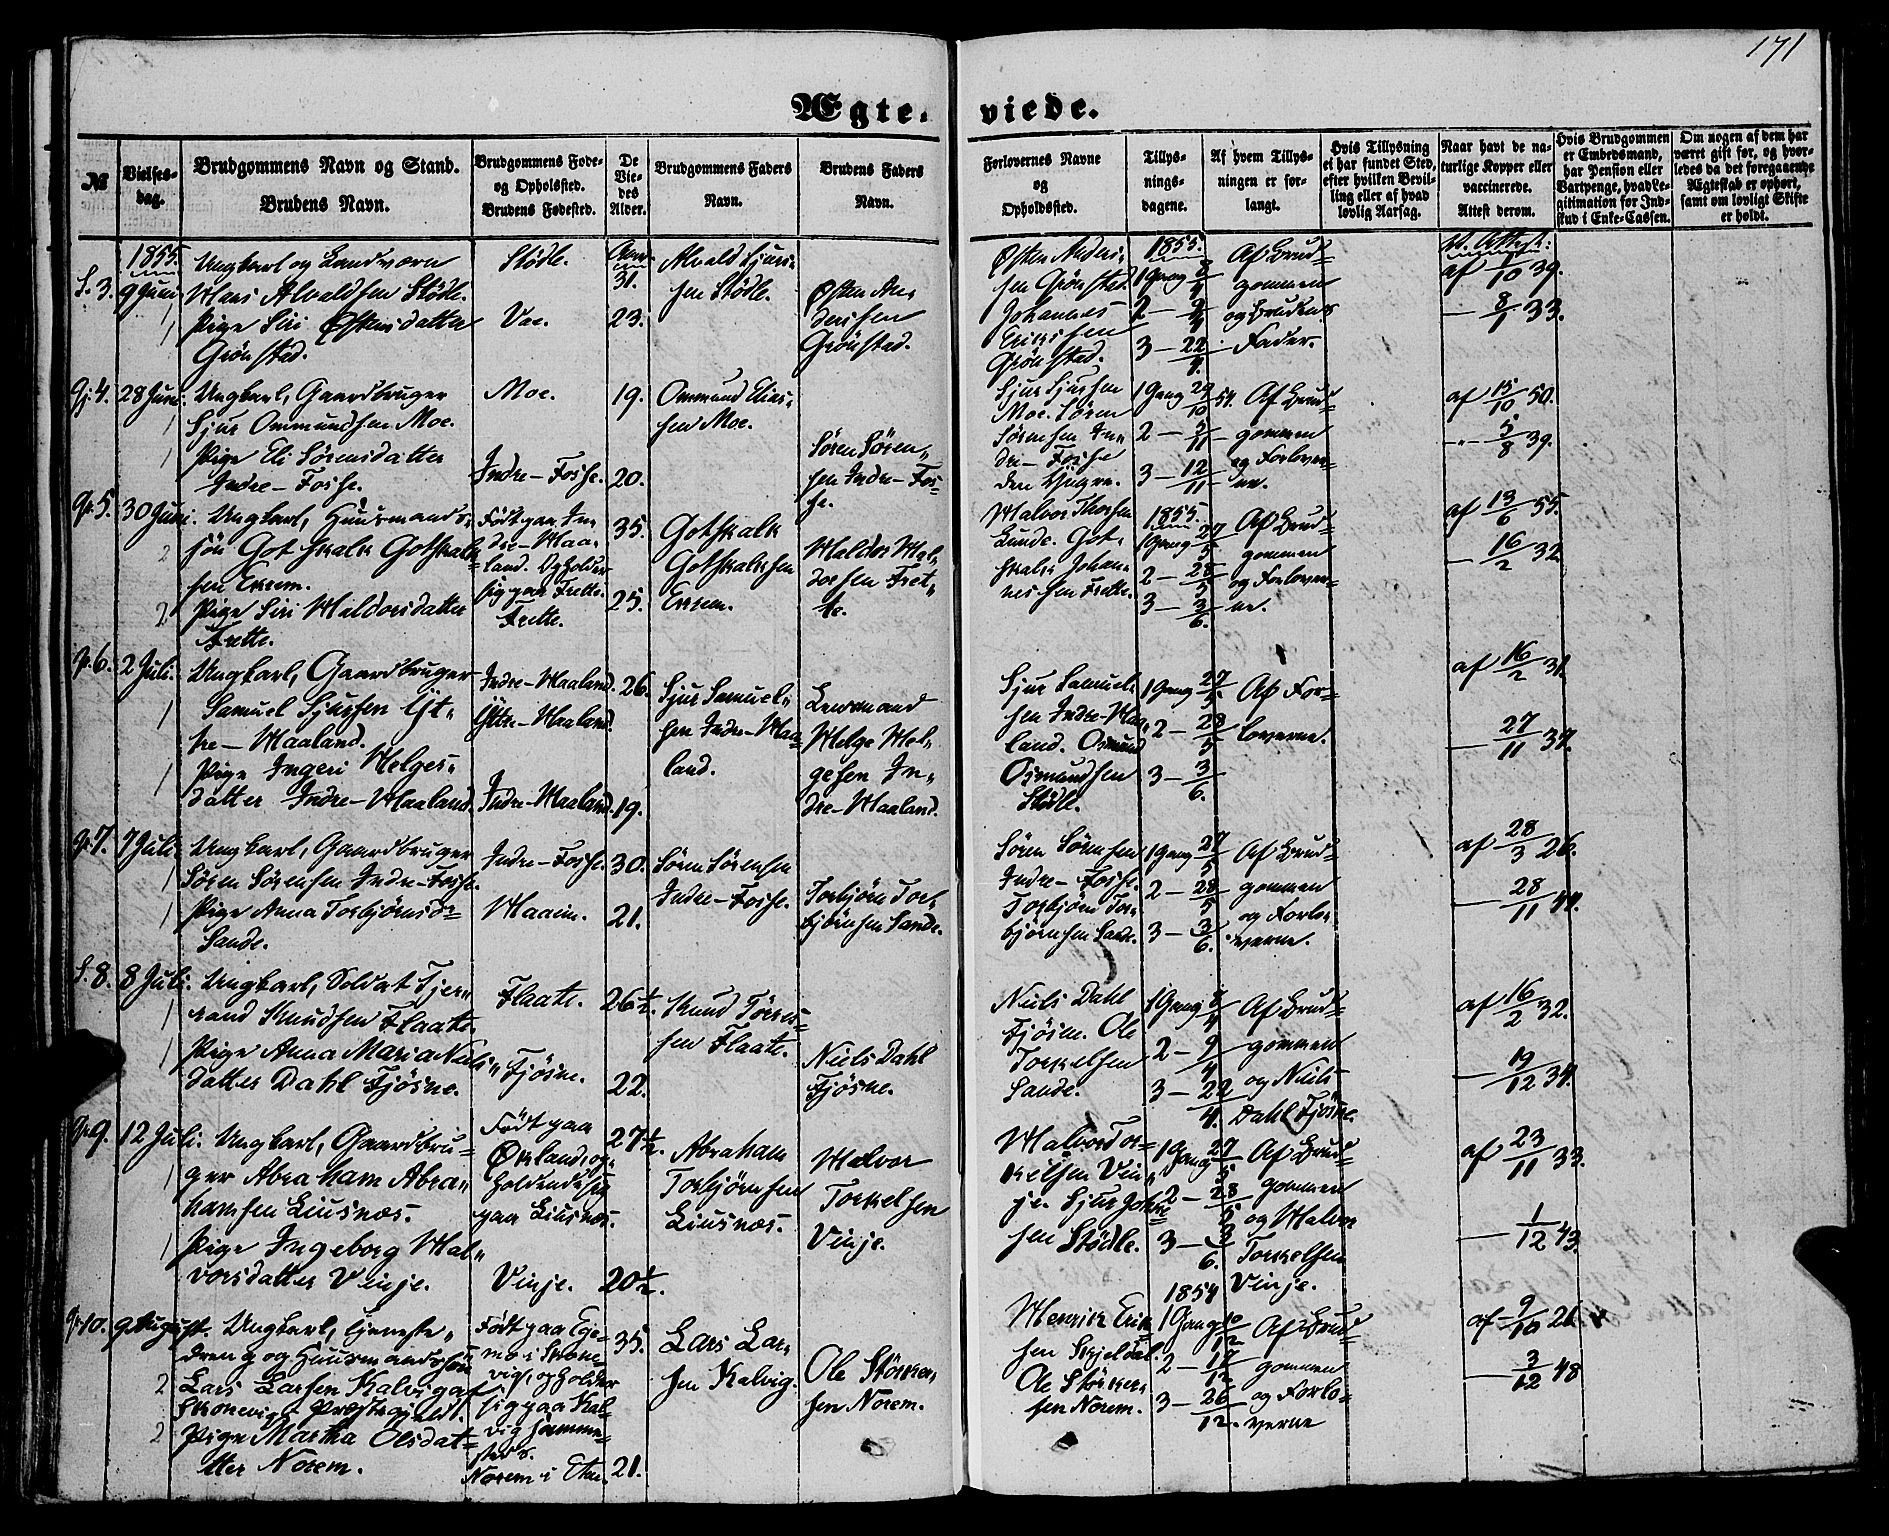 171
Ægte-
viede.
№
Vielses-
dag.
Brudgommens Navn og Stand.
Brudens Navn.
Brudgommens Føde-
og Opholssted.
Brudens Fødested.
De
Vie-
des
Alder.
Brudgommens Faders
Navn.
Brudens Faders
Navn.
Forlovernes Navne
og
Opholdssted.
Tillys-
nings-
dagene.
Af hvem Tillys-
ningen er for-
langt.
Hvis Tillysning
ei har fundet Sted,
efter hvilken Bevil-
ling eller af hvad
lovlig Aarsag.
Naar havt de na-
turlige Kopper eller
vaccinerede.
Attest derom.
Hvis Brudgommen
er Embedsmand,
har Pension eller
Vartpenge, hvad Le-
gitimation for Ind-
skud i Enke-Cassen.
Om nogen af dem har
været gift før, og hvor-
ledes da det foregaaende
Ægteskab er ophørt,
samt om lovligt Skifte
er holdt.
S. 3.
1855.
9 Juni
Ungkarl og Landværn
Hans Alvaldsen Stødle.
Pige Siri Østensdatter
Grönstad.
Stödle.
Vae.
31.
23.
Alvald Sjurs-
sen Stødle.
Østen An-
dersen
Grönstad.
Østen Anders-
sen Grönstad.
Johannes
Eriksen
Grönstad.
1855.
1 Gang 8/4
2 — 9/4
3 — 22/4.
Af Brud-
gommen
og Brudens
Fader.
af 1/10 39.
— 8/1 33.
Gj. 4.
28 Juni.
Ungkarl, Gaardbruger
Sjur Ommundsen Moe.
Pige Eli Sörensdatter
Indre-Fosse.
Moe.
Indre-Fosse.
19.
20.
Ommund Elias-
sen Moe.
Sören Sören-
sen Indre-Fos-
se.
Sjur Sjursen
Moe. Sören
Sörensen In-
dre-Fosse
den Yngre.
1 Gang 29/10 54.
2 — 5/11
3 — 12/11
Af Brud-
gommen
og Forlover-
ne.
af 15/10 50.
— 5/8 39.
Gr. 5.
30 Juni.
Ungkarl, Huusmands-
sön Gotskalk Gotskalk-
sen Ekrem.
Pige Siri Haldorsdatter
Frette.
Födt paa In-
dre-Maa-
land. Opholder
sig paa Frette.
Frette.
35.
25.
Gotskalk
Gotskalksen
Ekrem.
Haldor Hal-
dorsen Fret-
te.
Halvor Thorsen
Lunde. Got-
skalk Johan-
nessen Frette.
1855.
1 Gang 27/5
2 — 28/5
3 — 3/6.
Af Brud-
gommen
og Forlover-
ne.
af 13/6 55.
— 16/2 32
Gr. 6.
2 Juli.
Ungkarl, Gaardbruger
Samuel Sjursen Yt-
tre-Maaland.
Pige Ingeri Helges-
datter Indre-Maaland.
Indre-Maaland.
Yttre-Maaland.
Indre-Maaland.
26.
19.
Sjur Samuel-
sen Indre-Maa-
land.
Lensmand
Helge Hel-
gesen In-
dre-Maaland.
Sjur Samuel-
sen Indre-Maa-
land. Osmund
Osmundsen
Stödle.
1 Gang 27/5.
2 — 28/5
3 — 3/6.
Af For-
loverne.
af 16/2 31.
— 27/11 37.
Gr. 7.
7 Juli.
Ungkarl, Gaardbruger
Sören Sörensen Indre-Fosse.
Pige Anna Torbjörnsd=
Sande.
Indre-Fosse.
30.
21.
Sören Sörensen
Indre-Fosse.
Torbjörn Tor-
björnsen Sande.
Sören Sörensen
Indre-Fosse.
Torbjörn Tor-
björnsen Sande.
1 Gang 27/5
2 — 28/5
3 — 3/6.
Af Brud-
gommen
og Forlo-
verne.
af 28/3 26.
— 28/11 44.
S. 8.
8 Juli.
Ungkarl, Soldat Tjer-
rand Knudsen Flaate.
Pige Anna Maria Niels-
datter Dahl Fjösne.
Flaate.
Fjösne.
26½.
22.
Knud Törres-
sen Flaate.
Niels Dahl
Fjösne.
Niels Dahl
Fjösne. Ole
Torkelsen
Sande.
1 Gang 8/4
2 — 9/4
3 — 22/4.
Af Brud-
gommen
og Niels
Dahl Fjösne.
af 16/2 32.
— 19/12 34.
Gr 9.
12 Juli.
Ungkarl, Gaardbru-
ger Abraham Abra-
hamsen Liusnæs.
Pige Ingeborg Hal-
vorsdatter Vinje.
Födt paa
Økland, op-
holdende sig
paa Liusnæs.
Vinje.
27½.
20½.
Abraham
Torbjörnsen
Liusnæs.
Halvor
Torkelsen
Vinje.
Halvor Tor-
kelsen Vin-
je. Sjur Johne-
sen Stödle.
1 Gang 27/5
2 — 28/5
3 — 3/6.
Af Brud-
gommen
og Halvor
Torkelsen
Vinje.
af 23/11 33.
— 1/12 43.
Gr 10.
9 August.
Ungkarl, Tjeneste-
dreng og Huusmandssön
Lars Larsen Kalvig af
Skonevigs Præstegjeld.
Pige Martha Olsdat-
ter Norem.
Födt paa Ege-
mo i Skone-
vig, opholder
sig paa Kal-
vig samme-
steds.
Norem i Etne.
35.
21.
Lars Lar-
sen Kalvig.
Ole Störker-
sen Norem.
Henrich Erik-
sen Skjeldal.
Ole Störker-
sen Norem.
1854
1 Gang 10/12
2 — 17/12
3 — 26/12.
Af Brud-
gommen
og Forlo-
verne
af 9/10 21
— 3/12 48